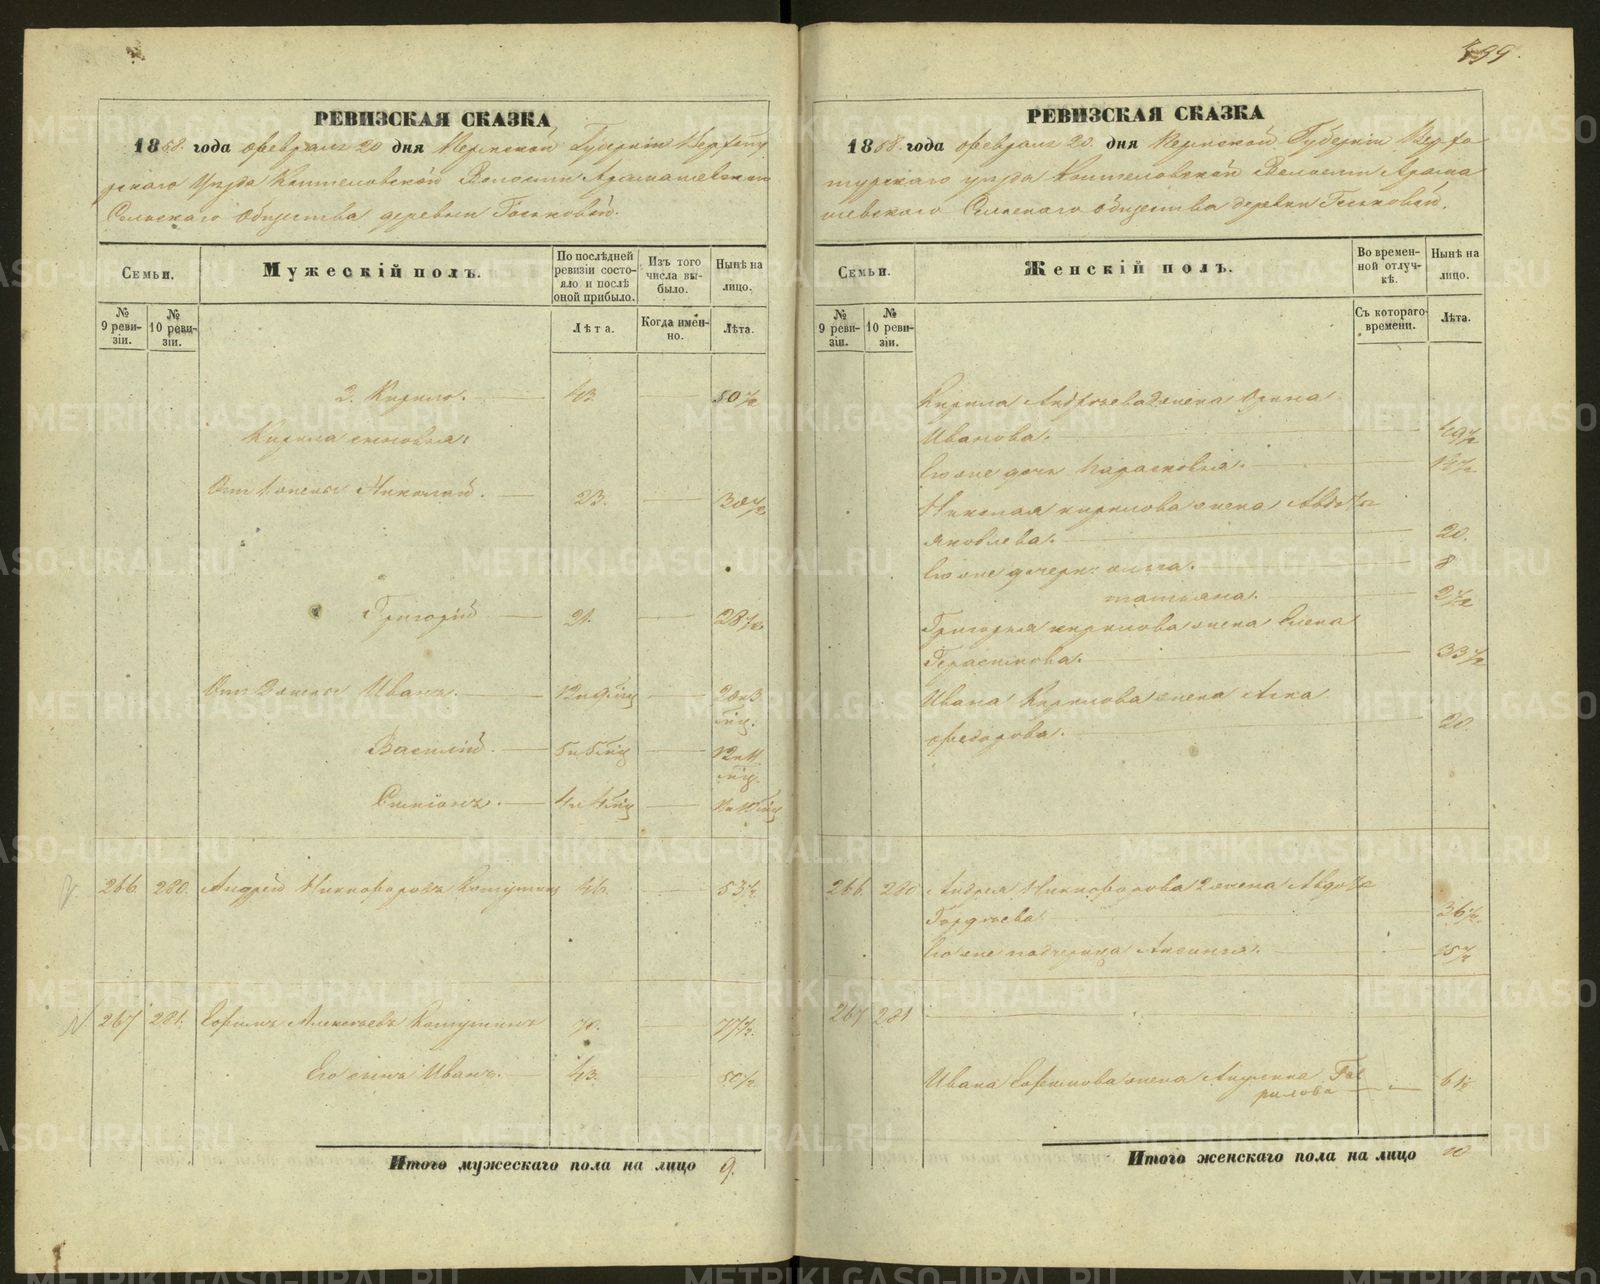 499.
РЕВИЗСКАЯ СКАЗКА
1858. года февраля 20 дня Пермской Губернiи Верхоту
рскаго Уѣзда Коптеловской Волости Арамашевскаго
Сельскаго Общества деревни Госьковой.
Семьи.
Мужескiй полъ.
По послѣдней ревизiи состояло и послѣ оной прибыло.
Изъ того числа выбыло.
Нынѣ на лицо.
№ 9 ревизiи.
№ 10 ревизiи.
Лѣта.
Когда именно.
Лѣта.
2. Кирило. 43. 50½
Кирила сыновья:
Отъ 1 жены Николай. 23. 30½
Григорiй 21. 28½
Отъ 2 жены Иванъ. 12 и 9 мѣц
мѣц.
Василiй. 5 и 5 мѣц 12 и
мѣц.
Симiонъ. 4 и 4 мѣц
266. 280. Андрей Никифоровъ 46. 53½
267 281. Ефимъ Алексѣевъ 70. 77½
Его сынъ Иванъ. 43. 50½
Итого мужескаго пола на лицо 9.
РЕВИЗСКАЯ СКАЗКА
1858. года февраля 20. дня Пермской Губернiи Верхо
турскаго уѣзда Коптеловской Волости Арама
шевскаго Сельскаго Общества деревни Госьковой.
Семьи.
Женскiй полъ.
Во временной отлучкѣ.
Нынѣ на лицо.
№ 9 ревизiи.
№ 10 ревизiи.
Съ котораго времени.
Лѣта.
Кирила Андреева 2 жена
Иванова. 49½
Его же дочь Парасковья.
Николая Кирилова жена Авдотья
Яковлева. 20.
Его же дочери: Ольга. 8
Татьяна. 2½
Григорья Кирилова жена Елена
Герасимова. 33½
Ивана Кирилова жена Анна
Федорова. 20.
266. 280 Андрея Никифорова 2 жена Авдотья
Гордѣева. 36½
Его же падчерица Аксинья.
267 281
Ивана Ефимова жена Гав
рилова
Итого женскаго пола на лицо 10
METRIKI.GASO-URAL.RU